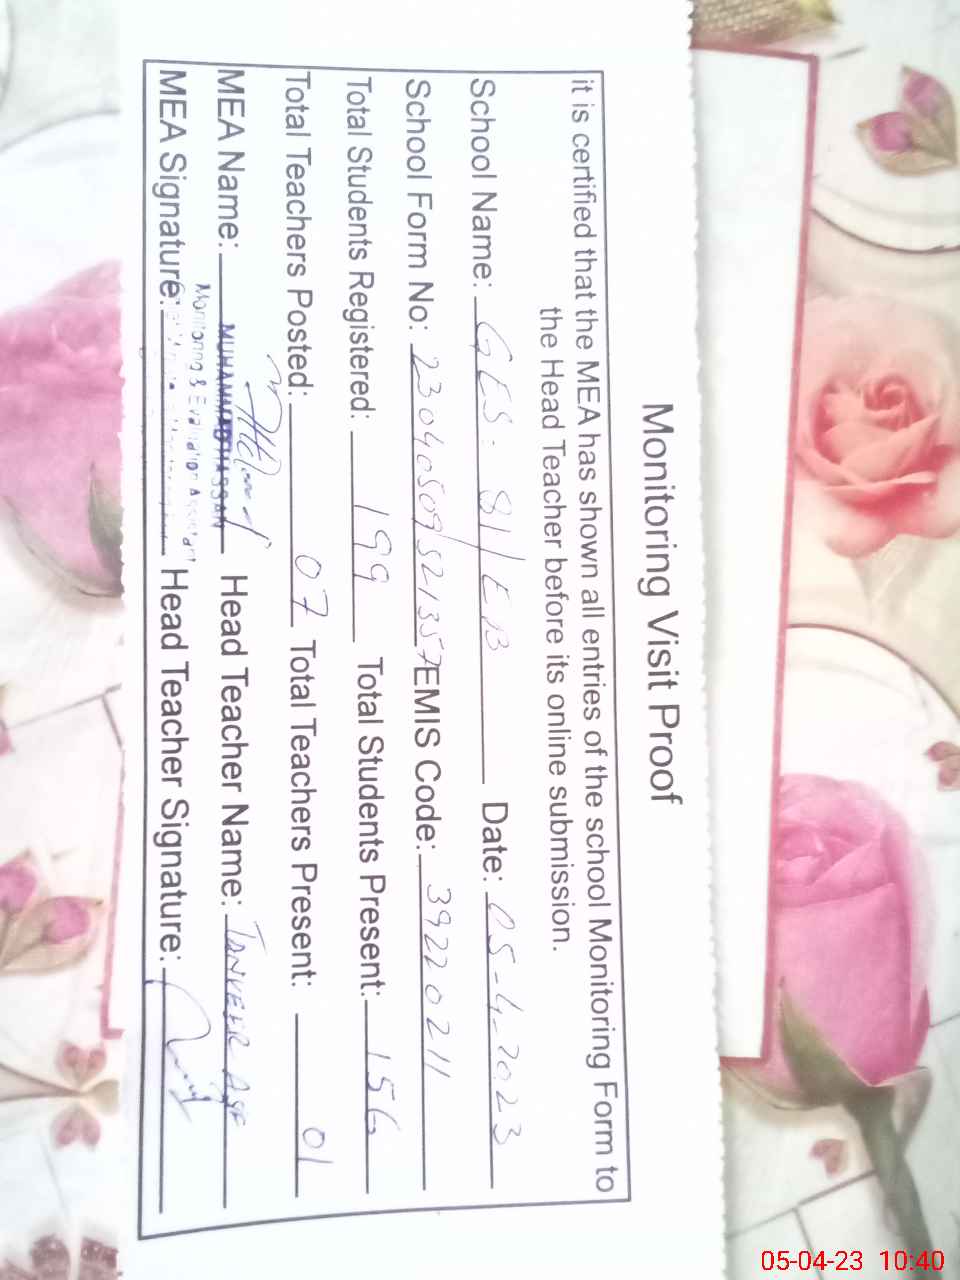 Monitoring Visit Proof
it is certified that the MEA has shown all entries of the school Monitoring Form to
the Head Teacher before its online submission.
School Name: GES. 81/EB Date: 05-4-2023
School Form No: EMIS Code: 39220211
Total Students Registered: 199 Total Students Present: 156
Total Teachers Posted: 07 Total Teachers Present: 01
MEA Name: MUHAMMAD HASSAN Head Teacher Name: TANVEER
Monitoring & Evaluation Assistant
MEA Signature: Head Teacher Signature:
05-04-23 10:40